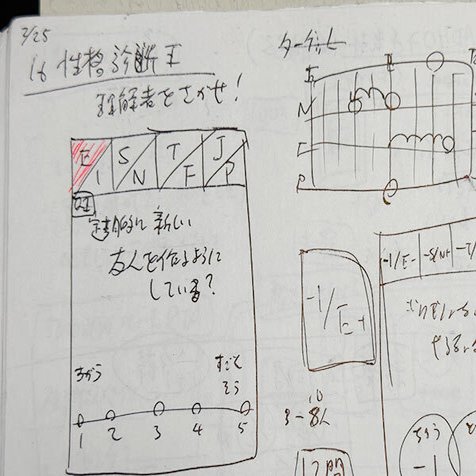 3/25
16 性格診断王
理解者をさがせ!
E S T J
I N F P
Q1
定期的に新しい
友人を作るように
している?
ちがう
すごく
そう
1 2 3 4 5
ターゲット
E
N
F
P
-1/E+
-1/E- -S/N+ -T/
3~8人
10
12問
-1